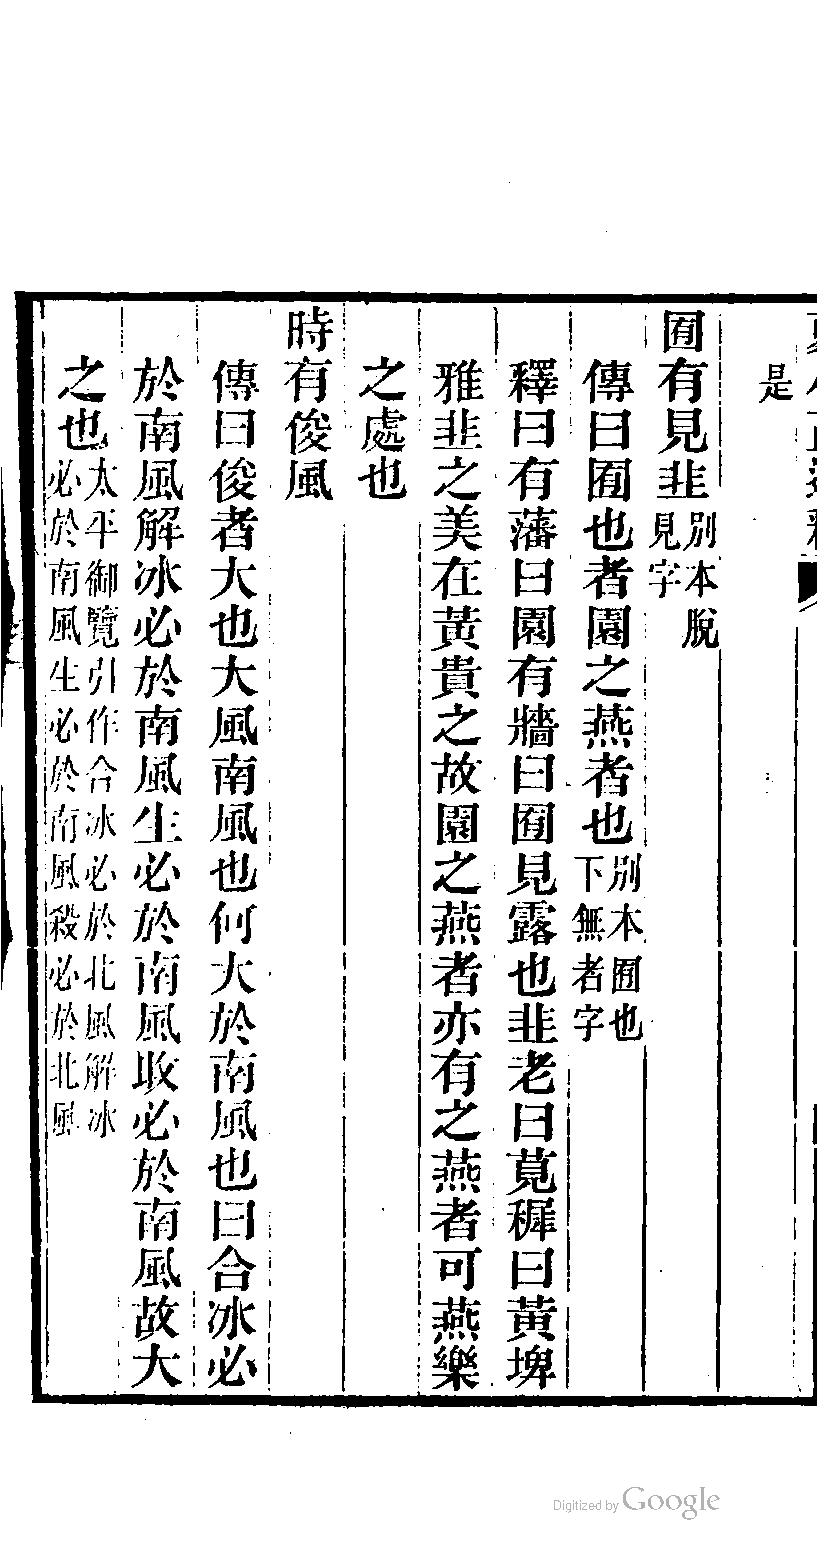 是
囿有見韭別本脫見字
傳曰囿也者園之燕者也別本囿也下無者字
釋曰有藩曰園有牆曰囿見露也韭老曰莧穉曰黃埤
雅韭之美在黃貴之故園之燕者亦有之燕者可燕樂
之處也
時有俊風
傳曰俊者大也大風南風也何大於南風也曰合冰必
於南風解冰必於南風生必於南風收必於南風故大
之也太平御覽引作合冰必於北風解冰必於南風生必於南風殺必於北風
Digitized by Google